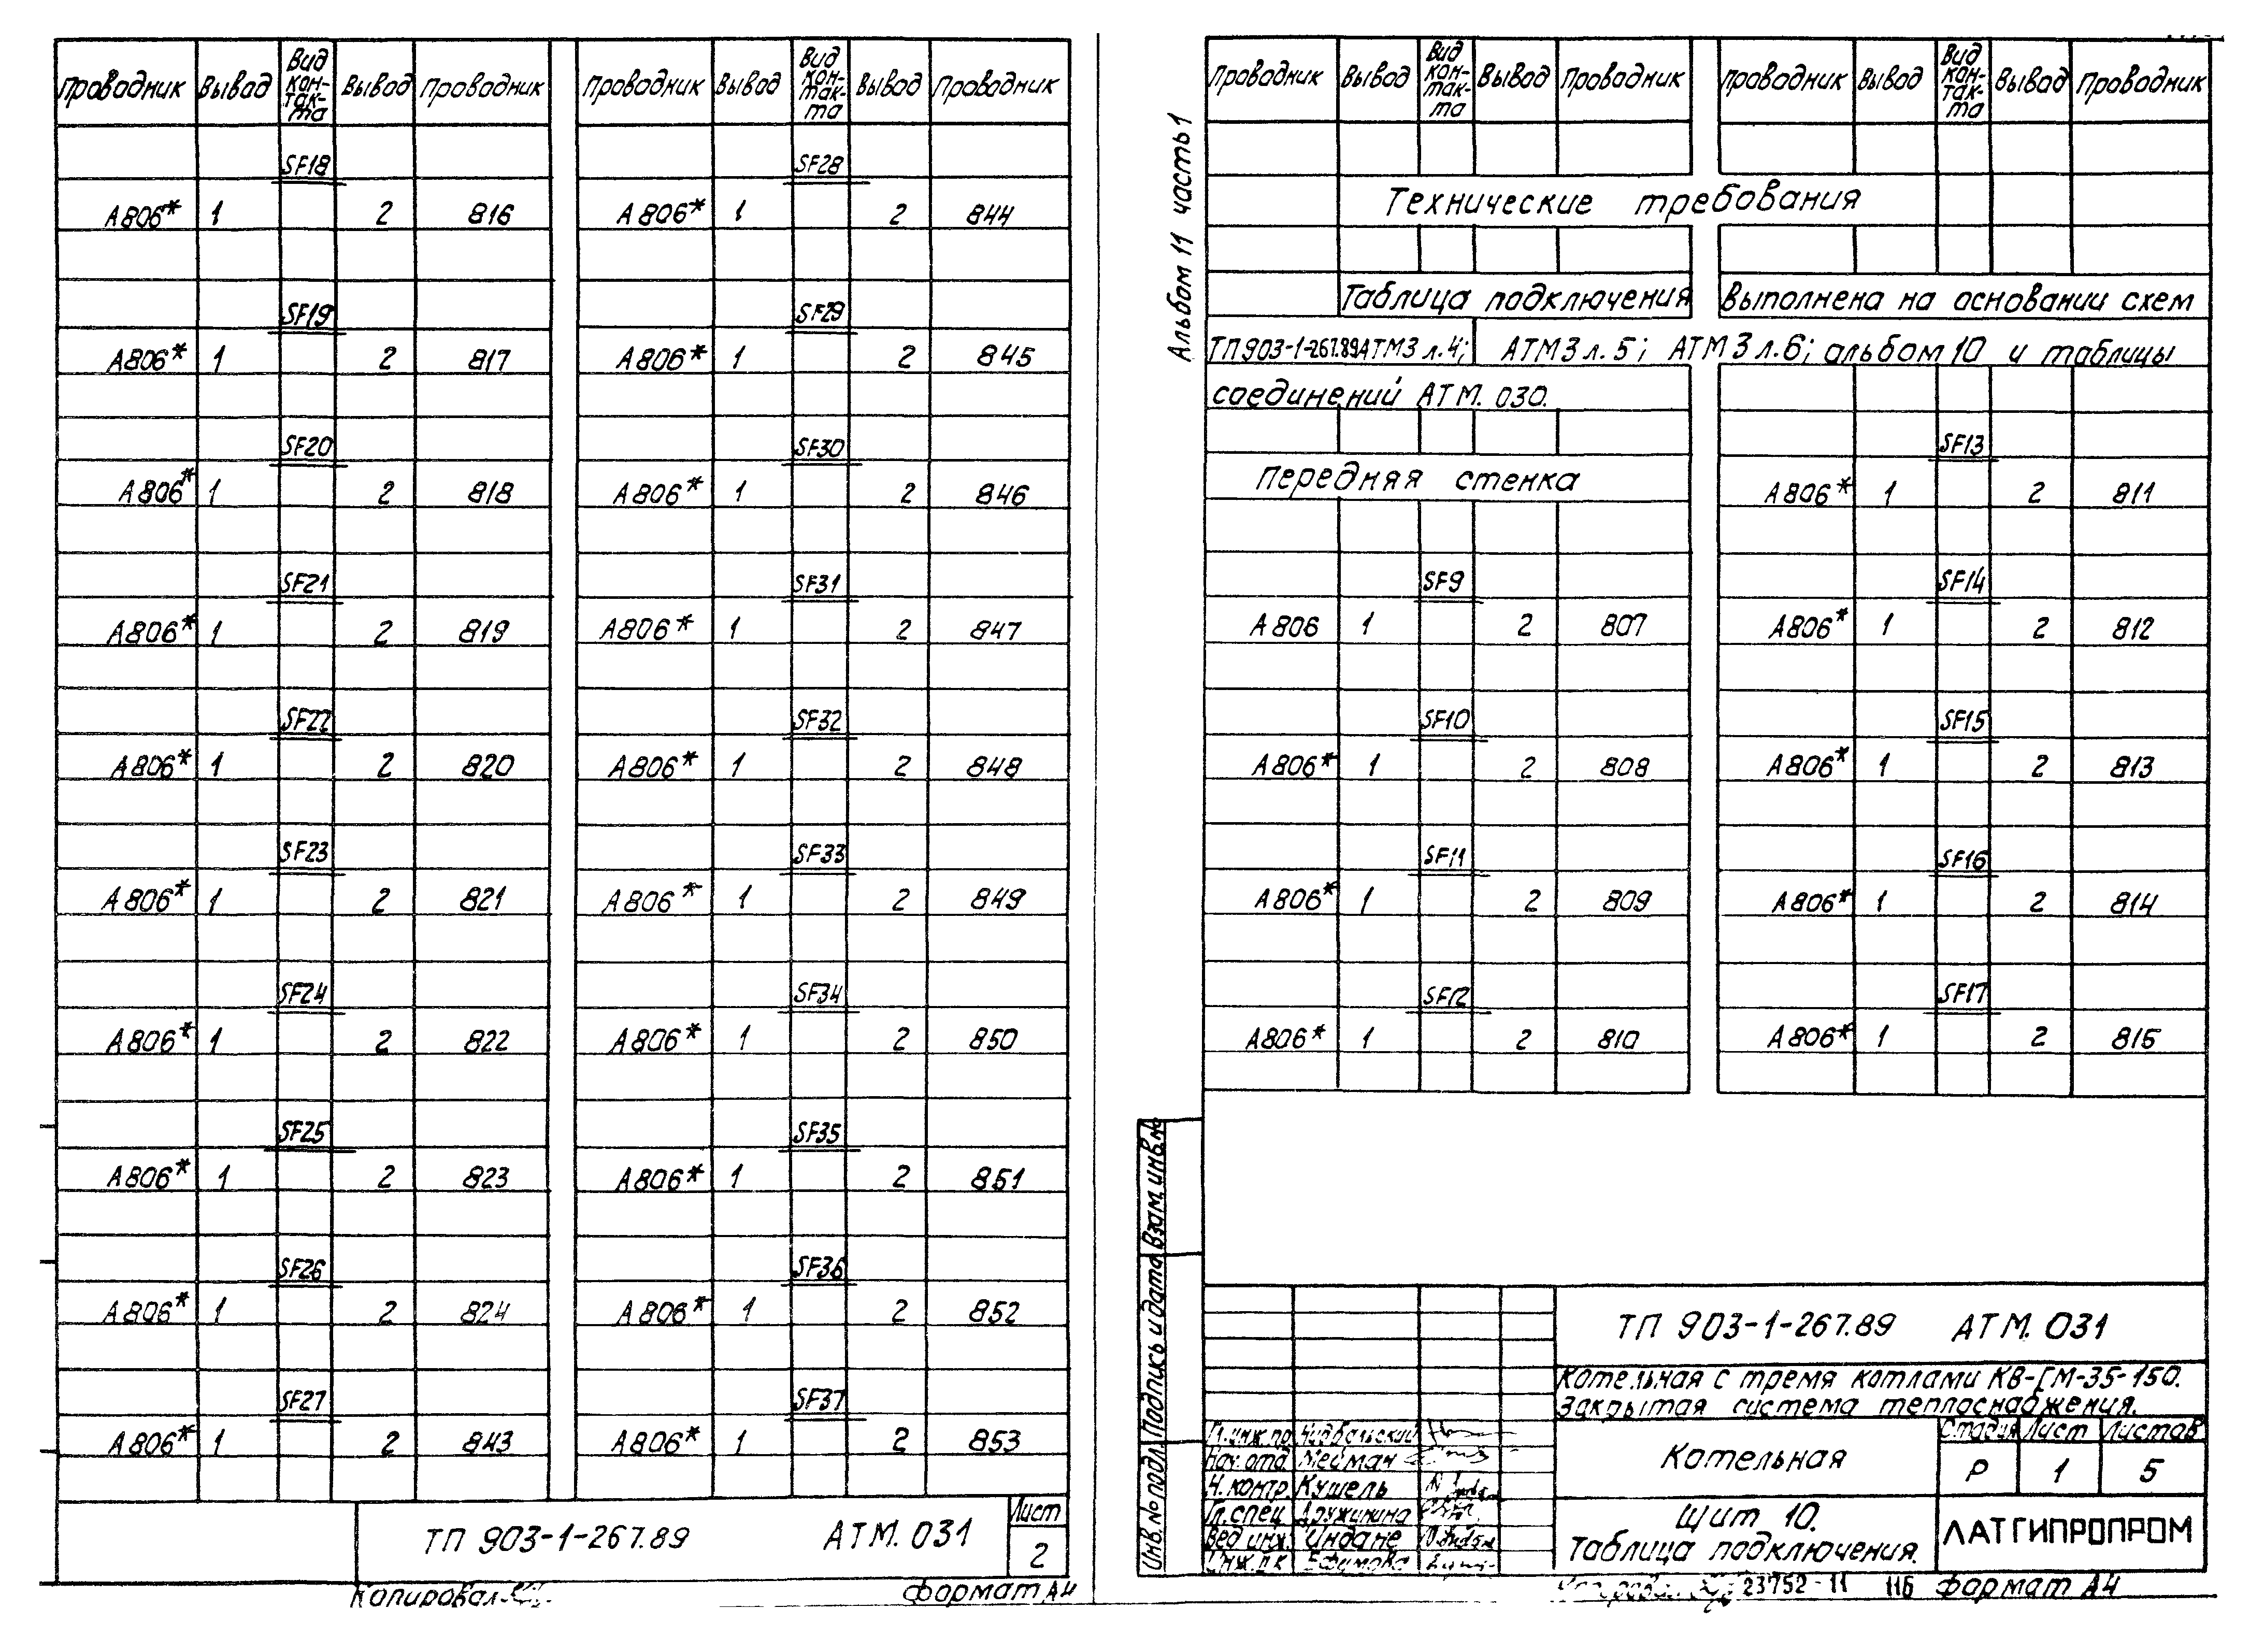 Проводник Вывод Вид кон-так-та Вывод Проводник Проводник Вывод Вид кон-так-та Вывод Проводник
SF18 SF28
А806* 1 2 816 А806* 1 2 844
SF19 SF29
А806* 1 2 817 А806* 1 2 845
SF20 SF30
А806* 1 2 818 А806* 1 2 846
SF21 SF31
А806* 1 2 819 А806* 1 2 847
SF22 SF32
А806* 1 2 820 А806* 1 2 848
SF23 SF33
А806* 1 2 821 А806* 1 2 849
SF24 SF34
А806* 1 2 822 А806* 1 2 850
SF25 SF35
А806* 1 2 823 А806* 1 2 851
SF26 SF36
А806* 1 2 824 А806* 1 2 852
SF27 SF37
А806* 1 2 843 А806* 1 2 853
ТП 903-1-267.89 АТМ. 031
Лист
2
Копировал
Формат А4
Альбом 11 часть 1
Проводник Вывод Вид кон-так-та Вывод Проводник Проводник Вывод Вид кон-так-та Вывод Проводник
Технические требования
Таблица подключения выполнена на основании схем
ТП903-1-267.89АТМ3 л.4; АТМ3 л.5; АТМ3 л.6; альбом 10 и таблицы
соединений АТМ. 030.
SF13
Передняя стенка
А806* 1 2 811
SF9 SF14
А806 1 2 807 А806* 1 2 812
SF10 SF15
А806* 1 2 808 А806* 1 2 813
SF11 SF16
А806* 1 2 809 А806* 1 2 814
SF12 SF17
А806* 1 2 810 А806* 1 2 815
Взам.инв.№
Подпись и дата
Инв.№ подл.
ТП 903-1-267.89 АТМ. 031
Котельная с тремя котлами КВ-ГМ-35-150.
Закрытая система теплоснабжения.
Гл.инж.пр
Нач.отд Мейман
Н.контр. Кушель
Гл.спец Дружинина
Вед инж. Индане
Инж. Ефимова
Котельная
Стадия Лист Листов
Р 1 5
Щит 10.
Таблица подключения.
ЛАТГИПРОПРОМ
23752-11 116 Формат А4